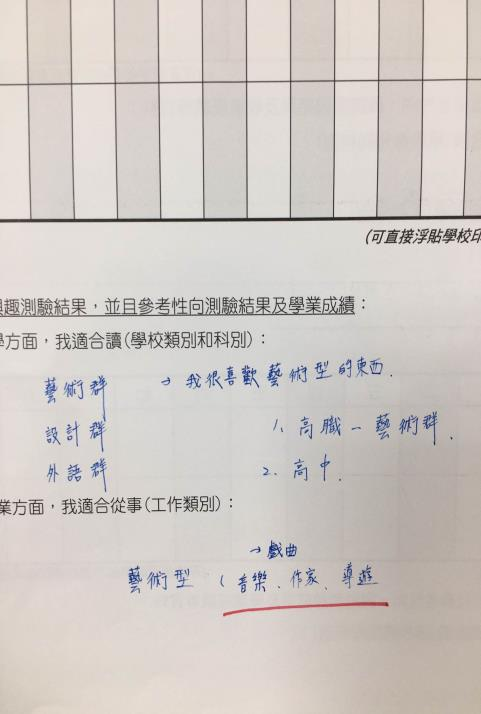 (可直接浮貼學校印
趣測驗結果，並且參考性向測驗結果及學業成績：
學方面，我適合讀(學校類別和科別)：
藝術群 → 我很喜歡藝術型的東西.
設計群 1. 高職－藝術群.
外語群 2. 高中.
業方面，我適合從事(工作類別)：
→戲曲
藝術型 ( 音樂、作家、導遊